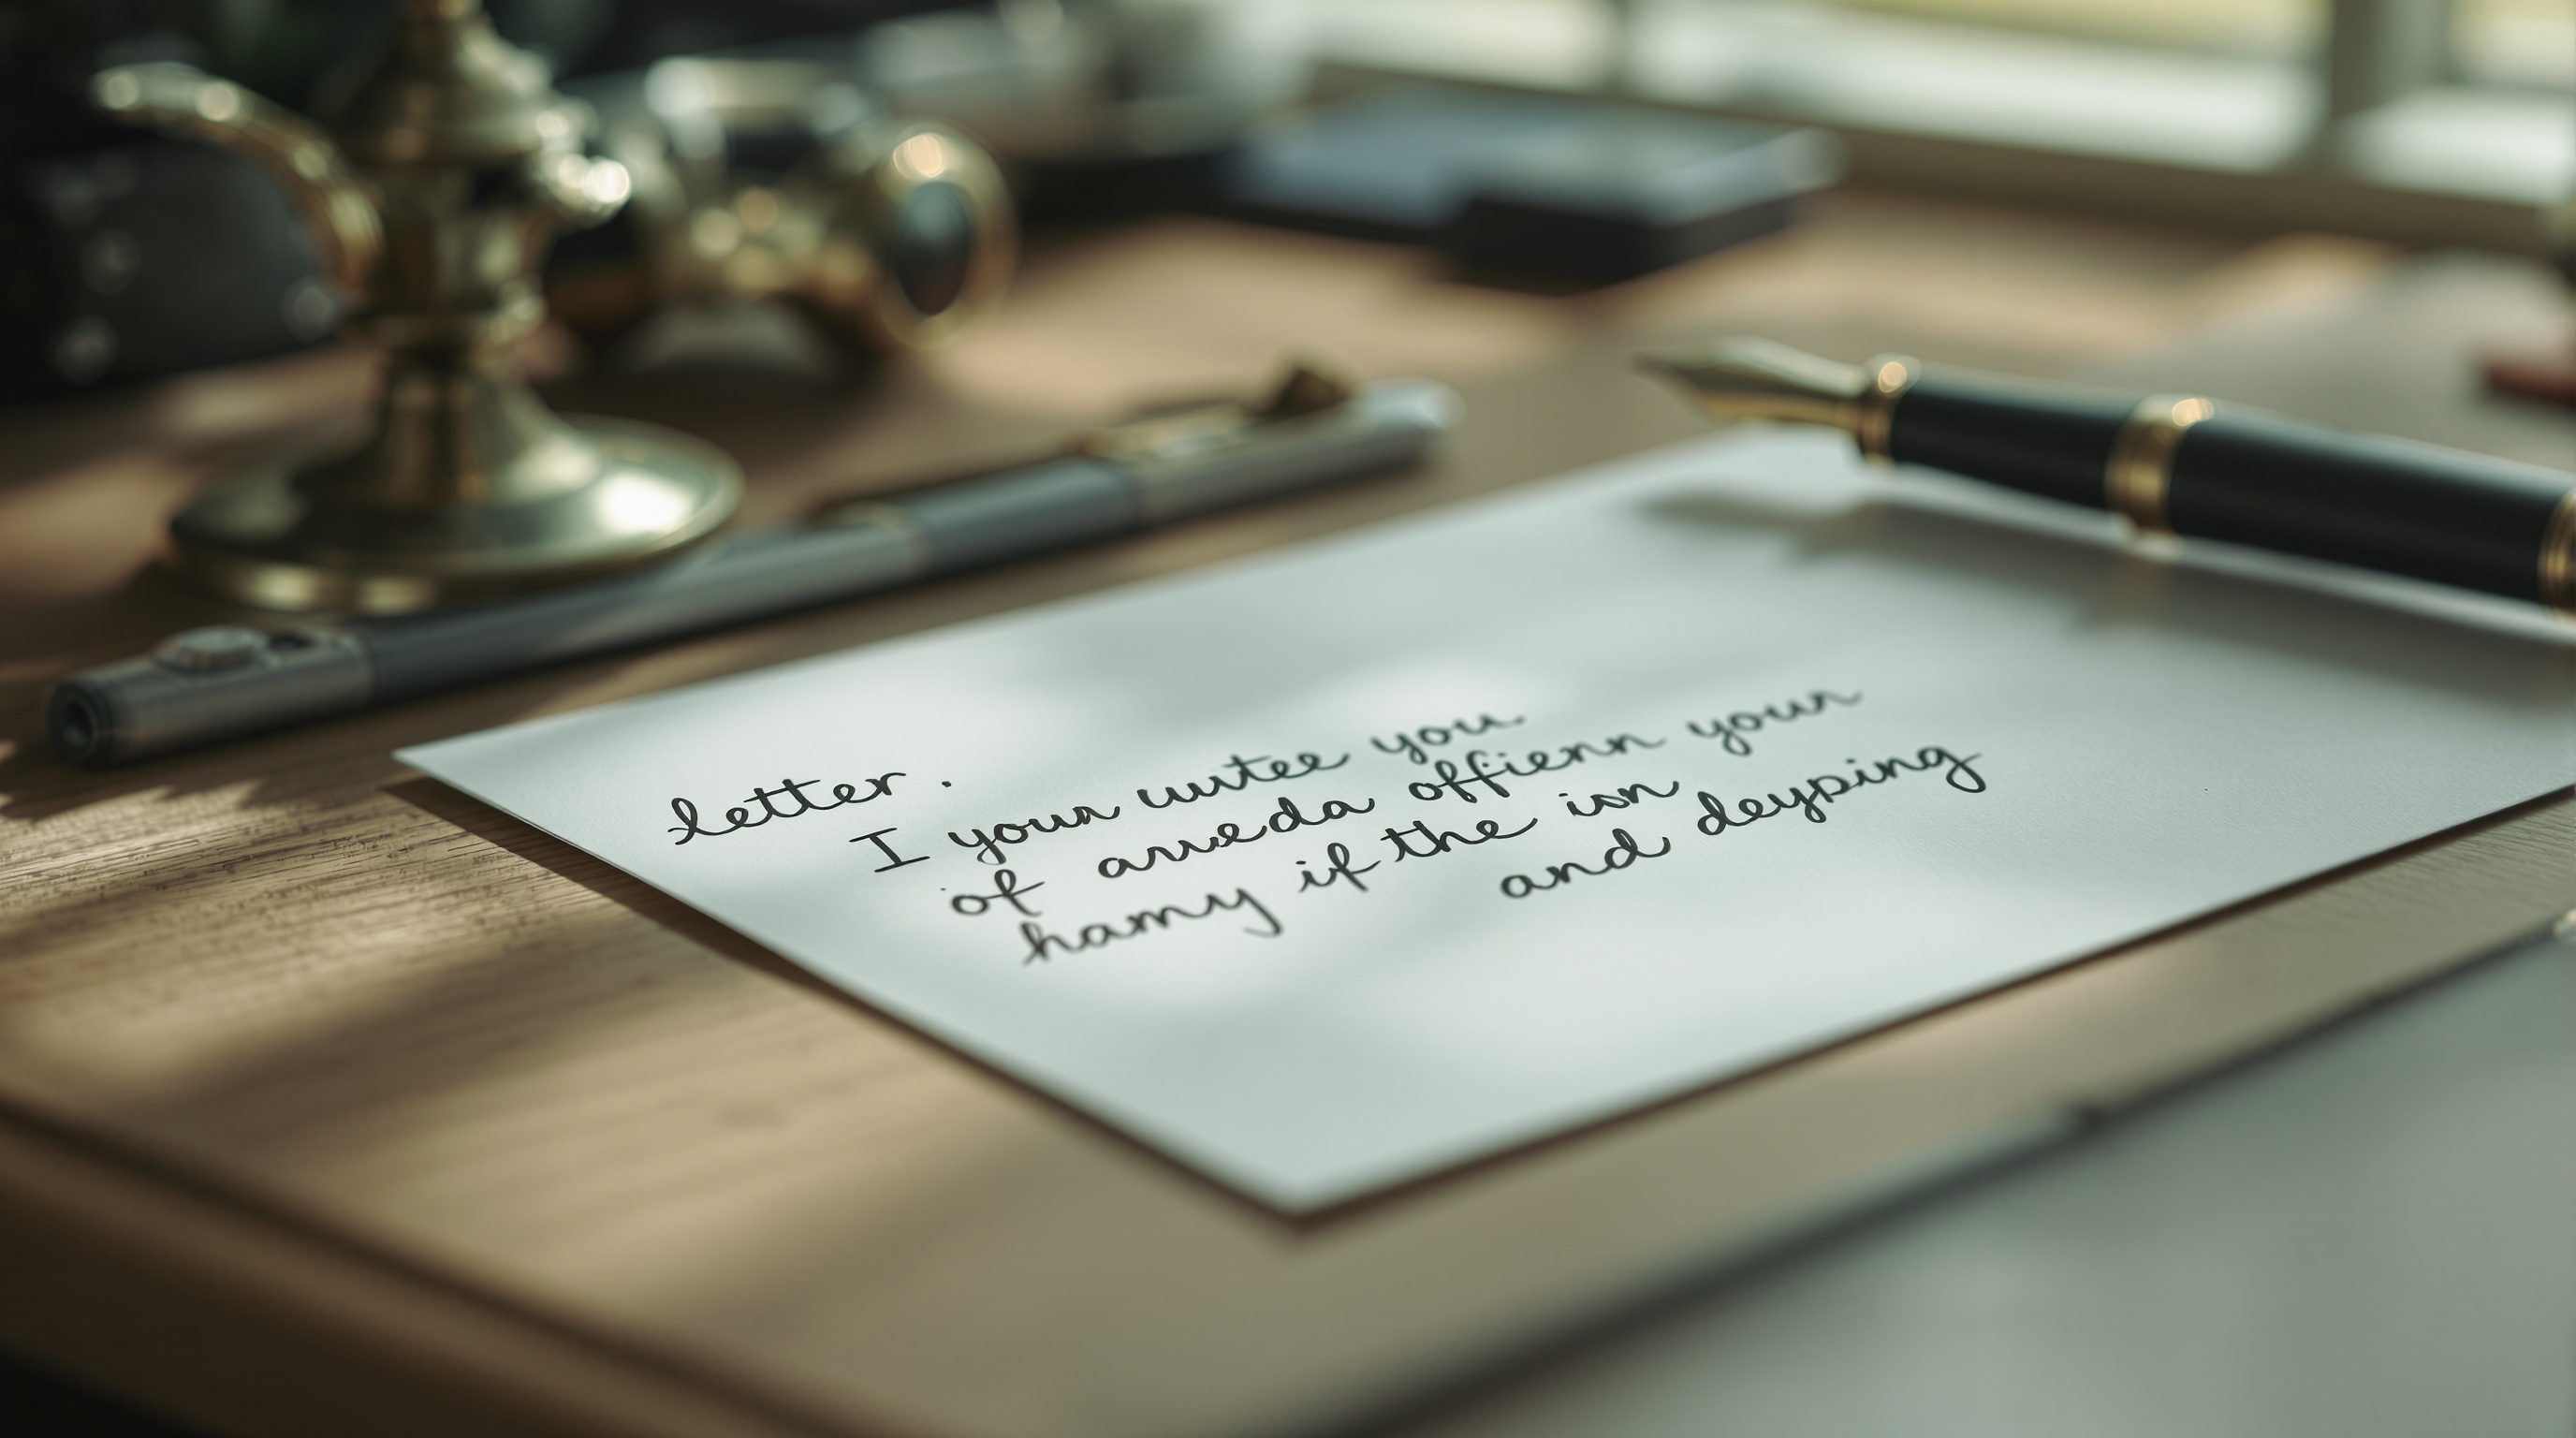 letter.
I your wutee you.
of arueda offienn your
hamy if the isn
and deyping